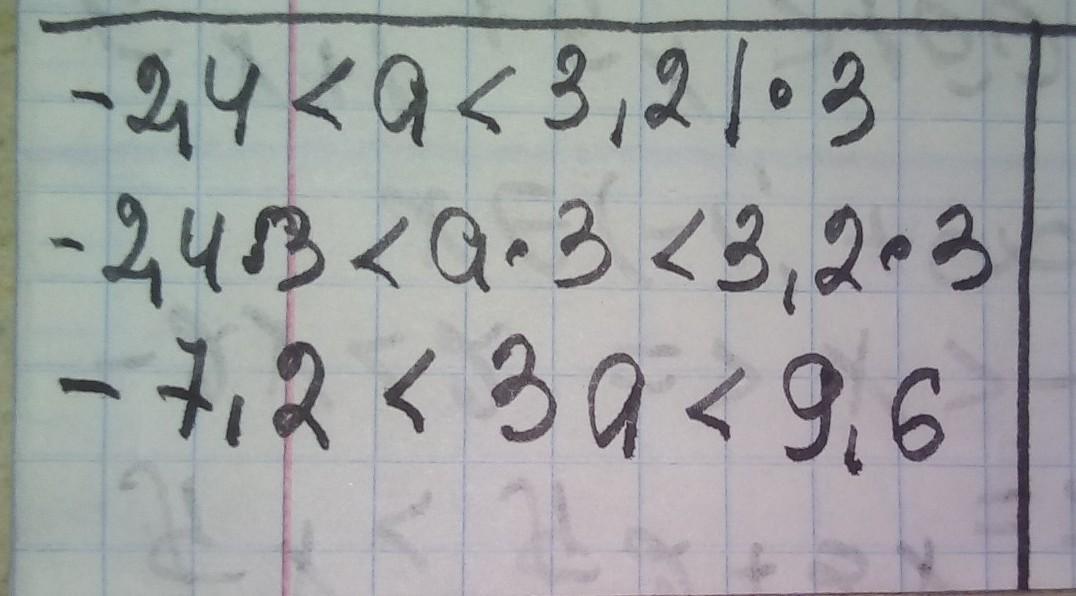 -2,4 < a < 3,2 | • 3
-2,4•3 < a•3 < 3,2•3
-7,2 < 3a < 9,6